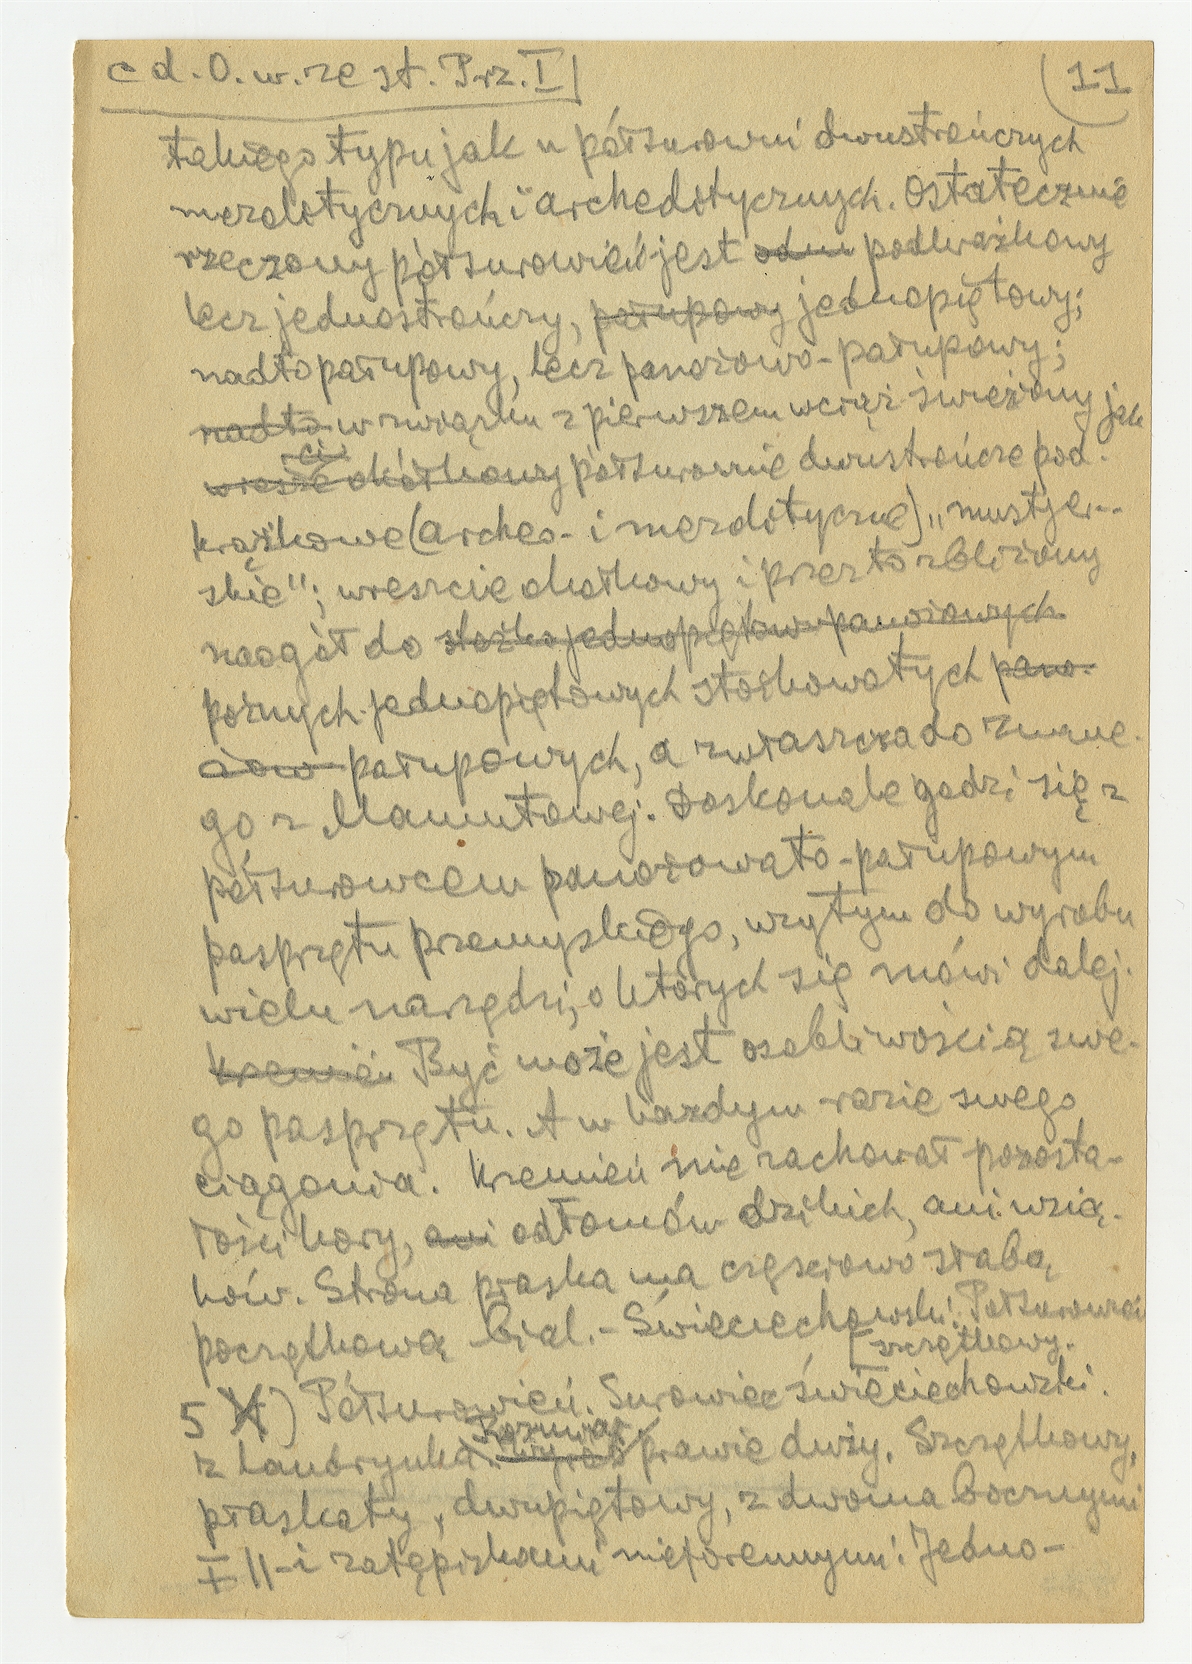 c d. O. w. ze st. Prz. I
11
takiego typu jak u półsurowni dwustrończych
mezolotycznych i archeolotycznych. Ostatecznie
rzeczony półsurowień jest podkrążkowy
lecz jednostrończy, pałupowy jednopiętowy;
nadto pałupowy, lecz panożowo-pałupowy;
nadto w związku z pierwszem wciąż zwężony jak
okółkowy półsurownie dwustrończe pod-
krążkowe (archeo- i mezolotyczne) „mustjer-
skie"; wreszcie okółkowy i przez to zbliżony
naogół do jednopiętowo panożowych
późnych jednopiętowych stożkowatych pano-
żow pałupowych, a zwłaszcza do znane-
go z Mamutowej. Doskonale godzi się z
półsurowcem panożowato-pałupowym
pasprzętu przemyskiego, wzytym do wyrobu
wielu narzędzi, o których się mówi dalej.
Krzemień Być może jest osobliwością swe-
go pasprzętu. A w każdym razie swego
ciągonia. Krzemień nie zachował pozosta-
łości kory, ani odłomów dzikich, ani wzią-
ków. Strona płaska ma częściowo słabą
początkową biel. - Świeciechowski. Półsurowień
szczątkowy.
5 4) Półsurowień. Surowiec świeciechowski.
Rozmiar
z Landrynka. wyrób prawie duży. Szczątkowy,
płaskaty, dwupiętowy, z dwoma bocznymi
I II-i zatępiskami nieforemnymi. Jedno-